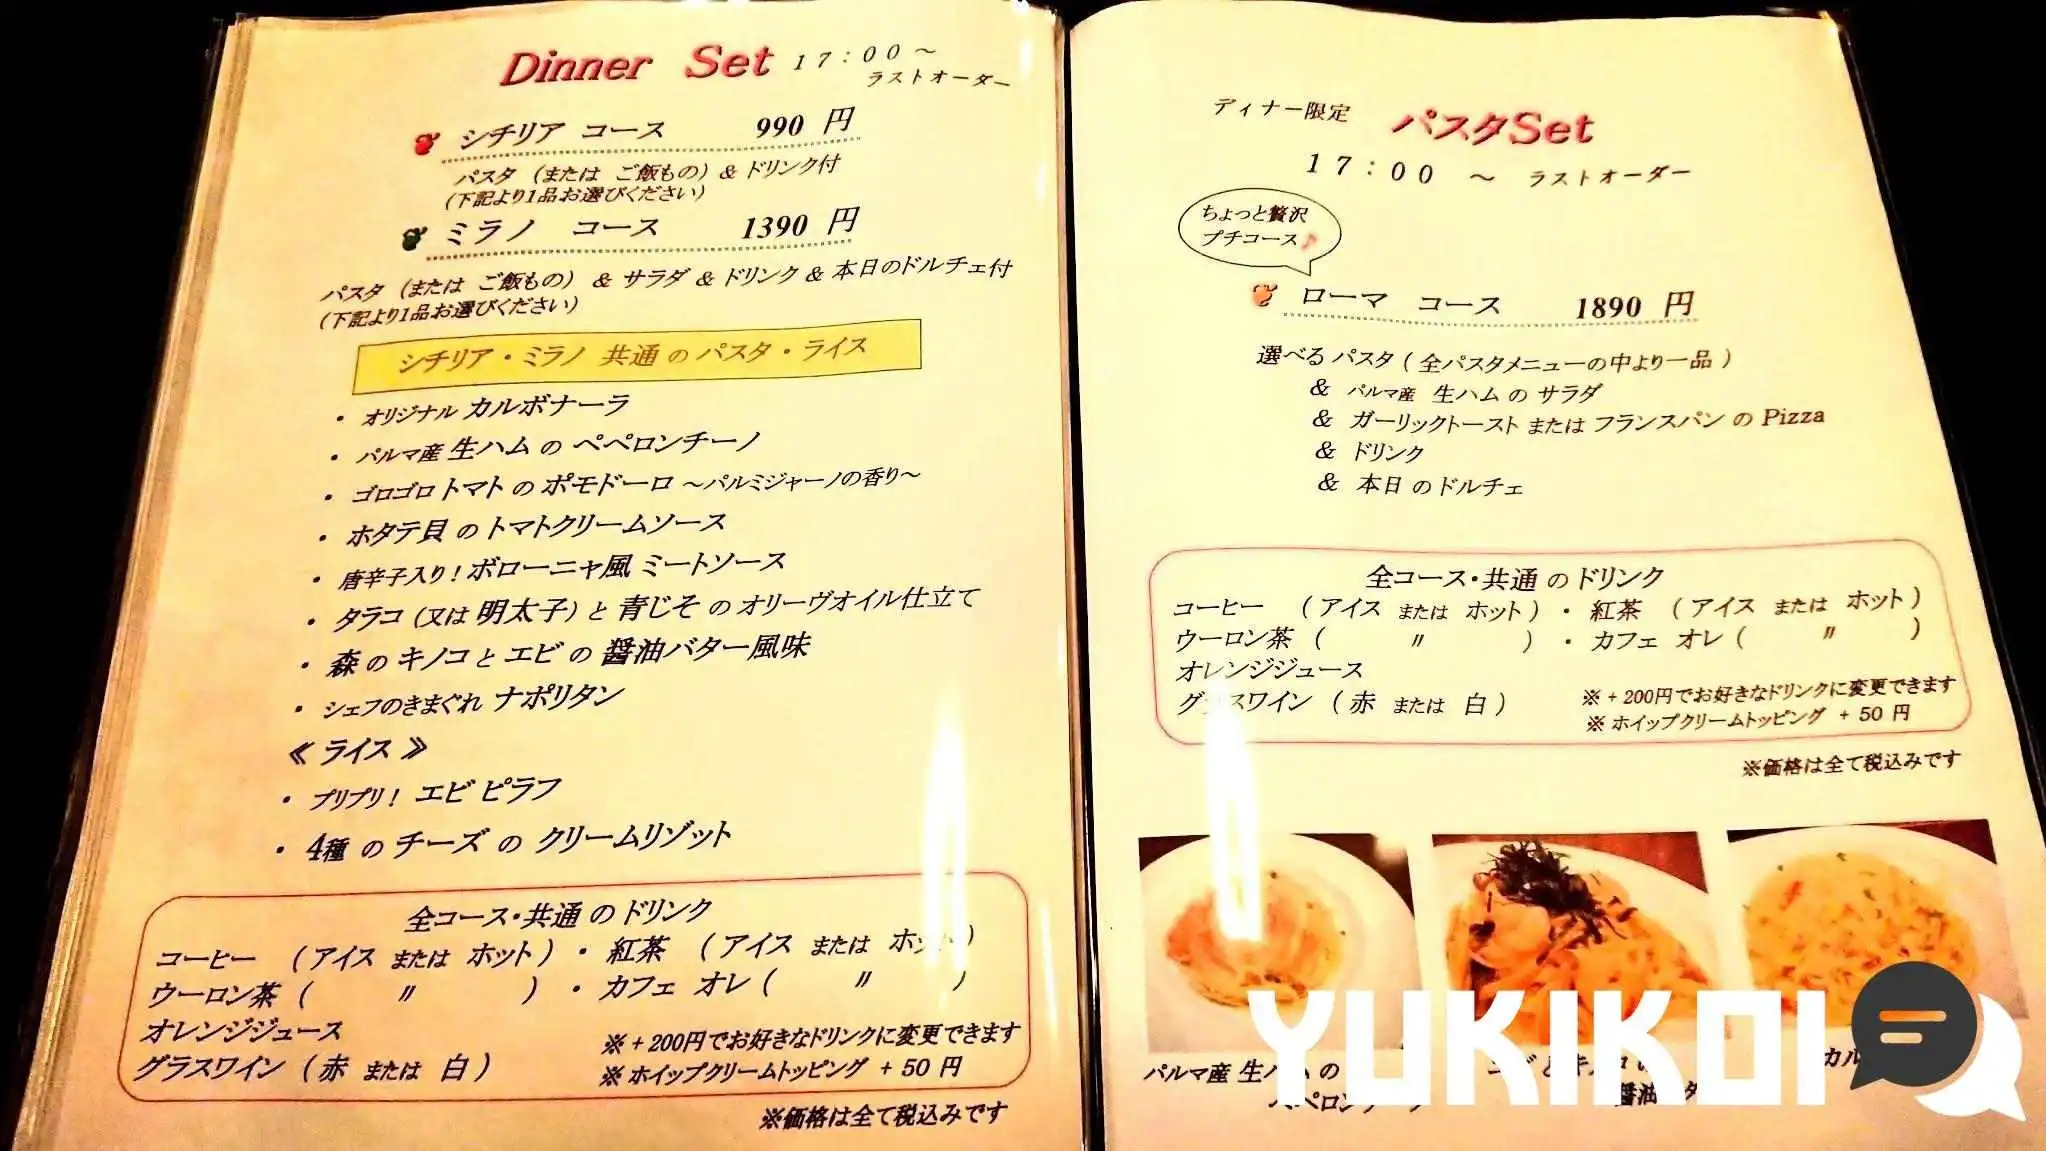 Dinner Set 17:00～
ラストオーダー
シチリア コース 990 円
パスタ (または ご飯もの) & ドリンク付
(下記より1品お選びください)
ミラノ コース 1390 円
パスタ (または ご飯もの) & サラダ & ドリンク & 本日のドルチェ付
(下記より1品お選びください)
シチリア・ミラノ 共通 の パスタ・ライス
・ オリジナル カルボナーラ
・ パルマ産 生ハム の ペペロンチーノ
・ ゴロゴロ トマト の ポモドーロ ～パルミジャーノの香り～
・ ホタテ貝 の トマトクリームソース
・ 唐辛子入り! ボローニャ風 ミートソース
・ タラコ (又は 明太子) と 青じそ の オリーヴオイル仕立て
・ 森 の キノコ と エビ の 醤油バター風味
・ シェフのきまぐれ ナポリタン
《 ライス 》
・ プリプリ! エビ ピラフ
・ 4種 の チーズ の クリームリゾット
全コース・共通 の ドリンク
コーヒー (アイス または ホット) ・ 紅茶 (アイス または ホット)
ウーロン茶 ( 〃 ) ・ カフェ オレ ( 〃 )
オレンジジュース
グラスワイン (赤 または 白)
※ + 200円でお好きなドリンクに変更できます
※ ホイップクリームトッピング + 50 円
※価格は全て税込みです
ディナー限定 パスタSet
17:00 ～ ラストオーダー
ちょっと贅沢
プチコース♪
ローマ コース 1890 円
選べる パスタ ( 全パスタメニューの中より一品 )
& パルマ産 生ハム の サラダ
& ガーリックトースト または フランスパン の Pizza
& ドリンク
& 本日 の ドルチェ
全コース・共通 の ドリンク
コーヒー (アイス または ホット) ・ 紅茶 (アイス または ホット)
ウーロン茶 ( 〃 ) ・ カフェ オレ ( 〃 )
オレンジジュース
グラスワイン (赤 または 白)
※ + 200円でお好きなドリンクに変更できます
※ ホイップクリームトッピング + 50 円
※価格は全て税込みです
パルマ産 生ハム の
ペペロンチーノ
醤油
カル
YUKIKOI